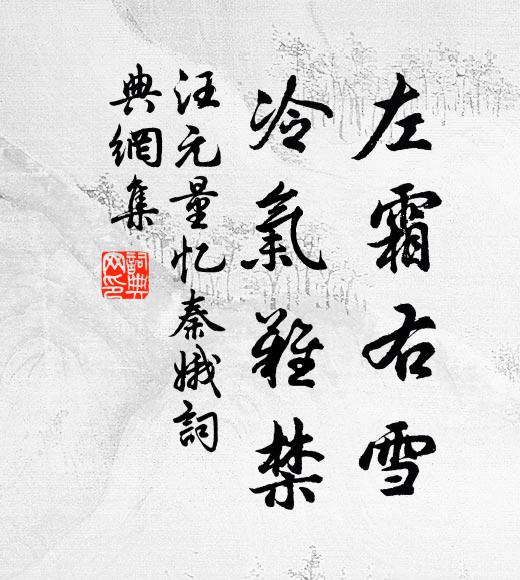 左霜右雪
冷氣難禁
汪元量忆秦娥詞
典網集
詞典网印